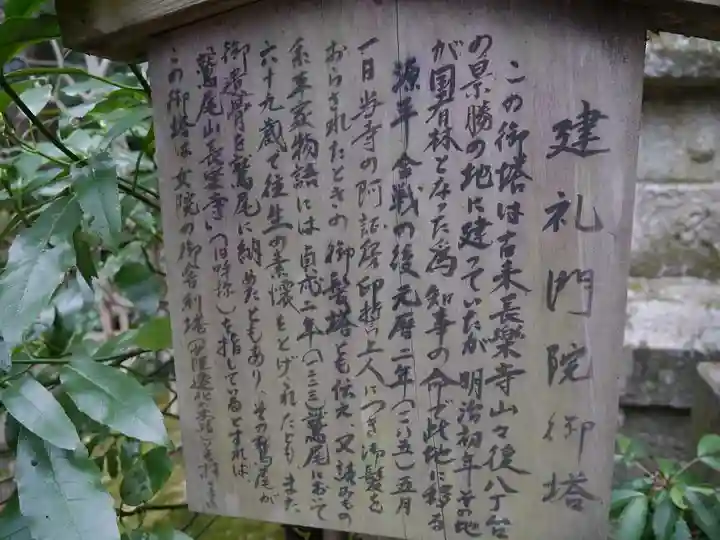 建礼門院御塔
この御塔は古来長樂寺山々後八丁台
の景勝の地に建っていたが明治初年その地
が国有林となった為知事の命で此地に移る
源平合戦の後元暦二年(一一八五)五月
一日当寺の阿証房印誓上人につき御髪を
おろされたときの御髪塔とも伝え又読みもの
系平家物語には貞応二年(一二二三)鷲尾において
六十九歳で往生の素懐をとげられたともまた
御遺骨を鷲尾に納めたともあり、その鷲尾が
「鷲尾山長楽寺」(旧呼称)を指しているとすれば、
この御塔は女院の御舎利塔